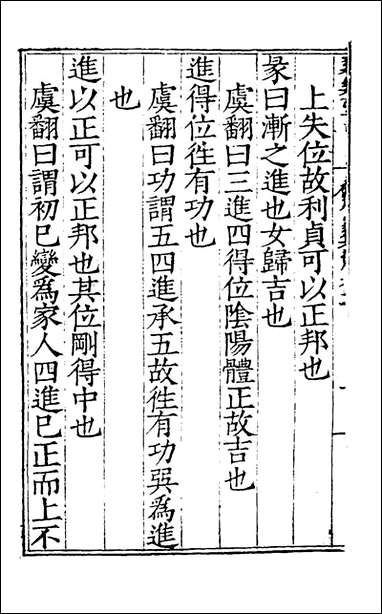 上失位故利貞可以正邦也
彖曰漸之進也女歸吉也
虞翻曰三進四得位陰陽體正故吉也
進得位徃有功也
虞翻曰功謂五四進承五故徃有功巽爲進
也
進以正可以正邦也其位剛得中也
虞翻曰謂初已變爲家人四進已正而上不